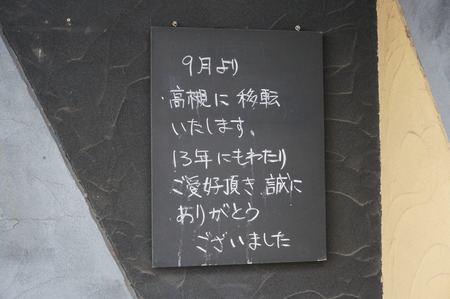 9月より
高槻に移転
いたします。
13年にもわたり
ご愛好頂き 誠に
ありがとう
ございました